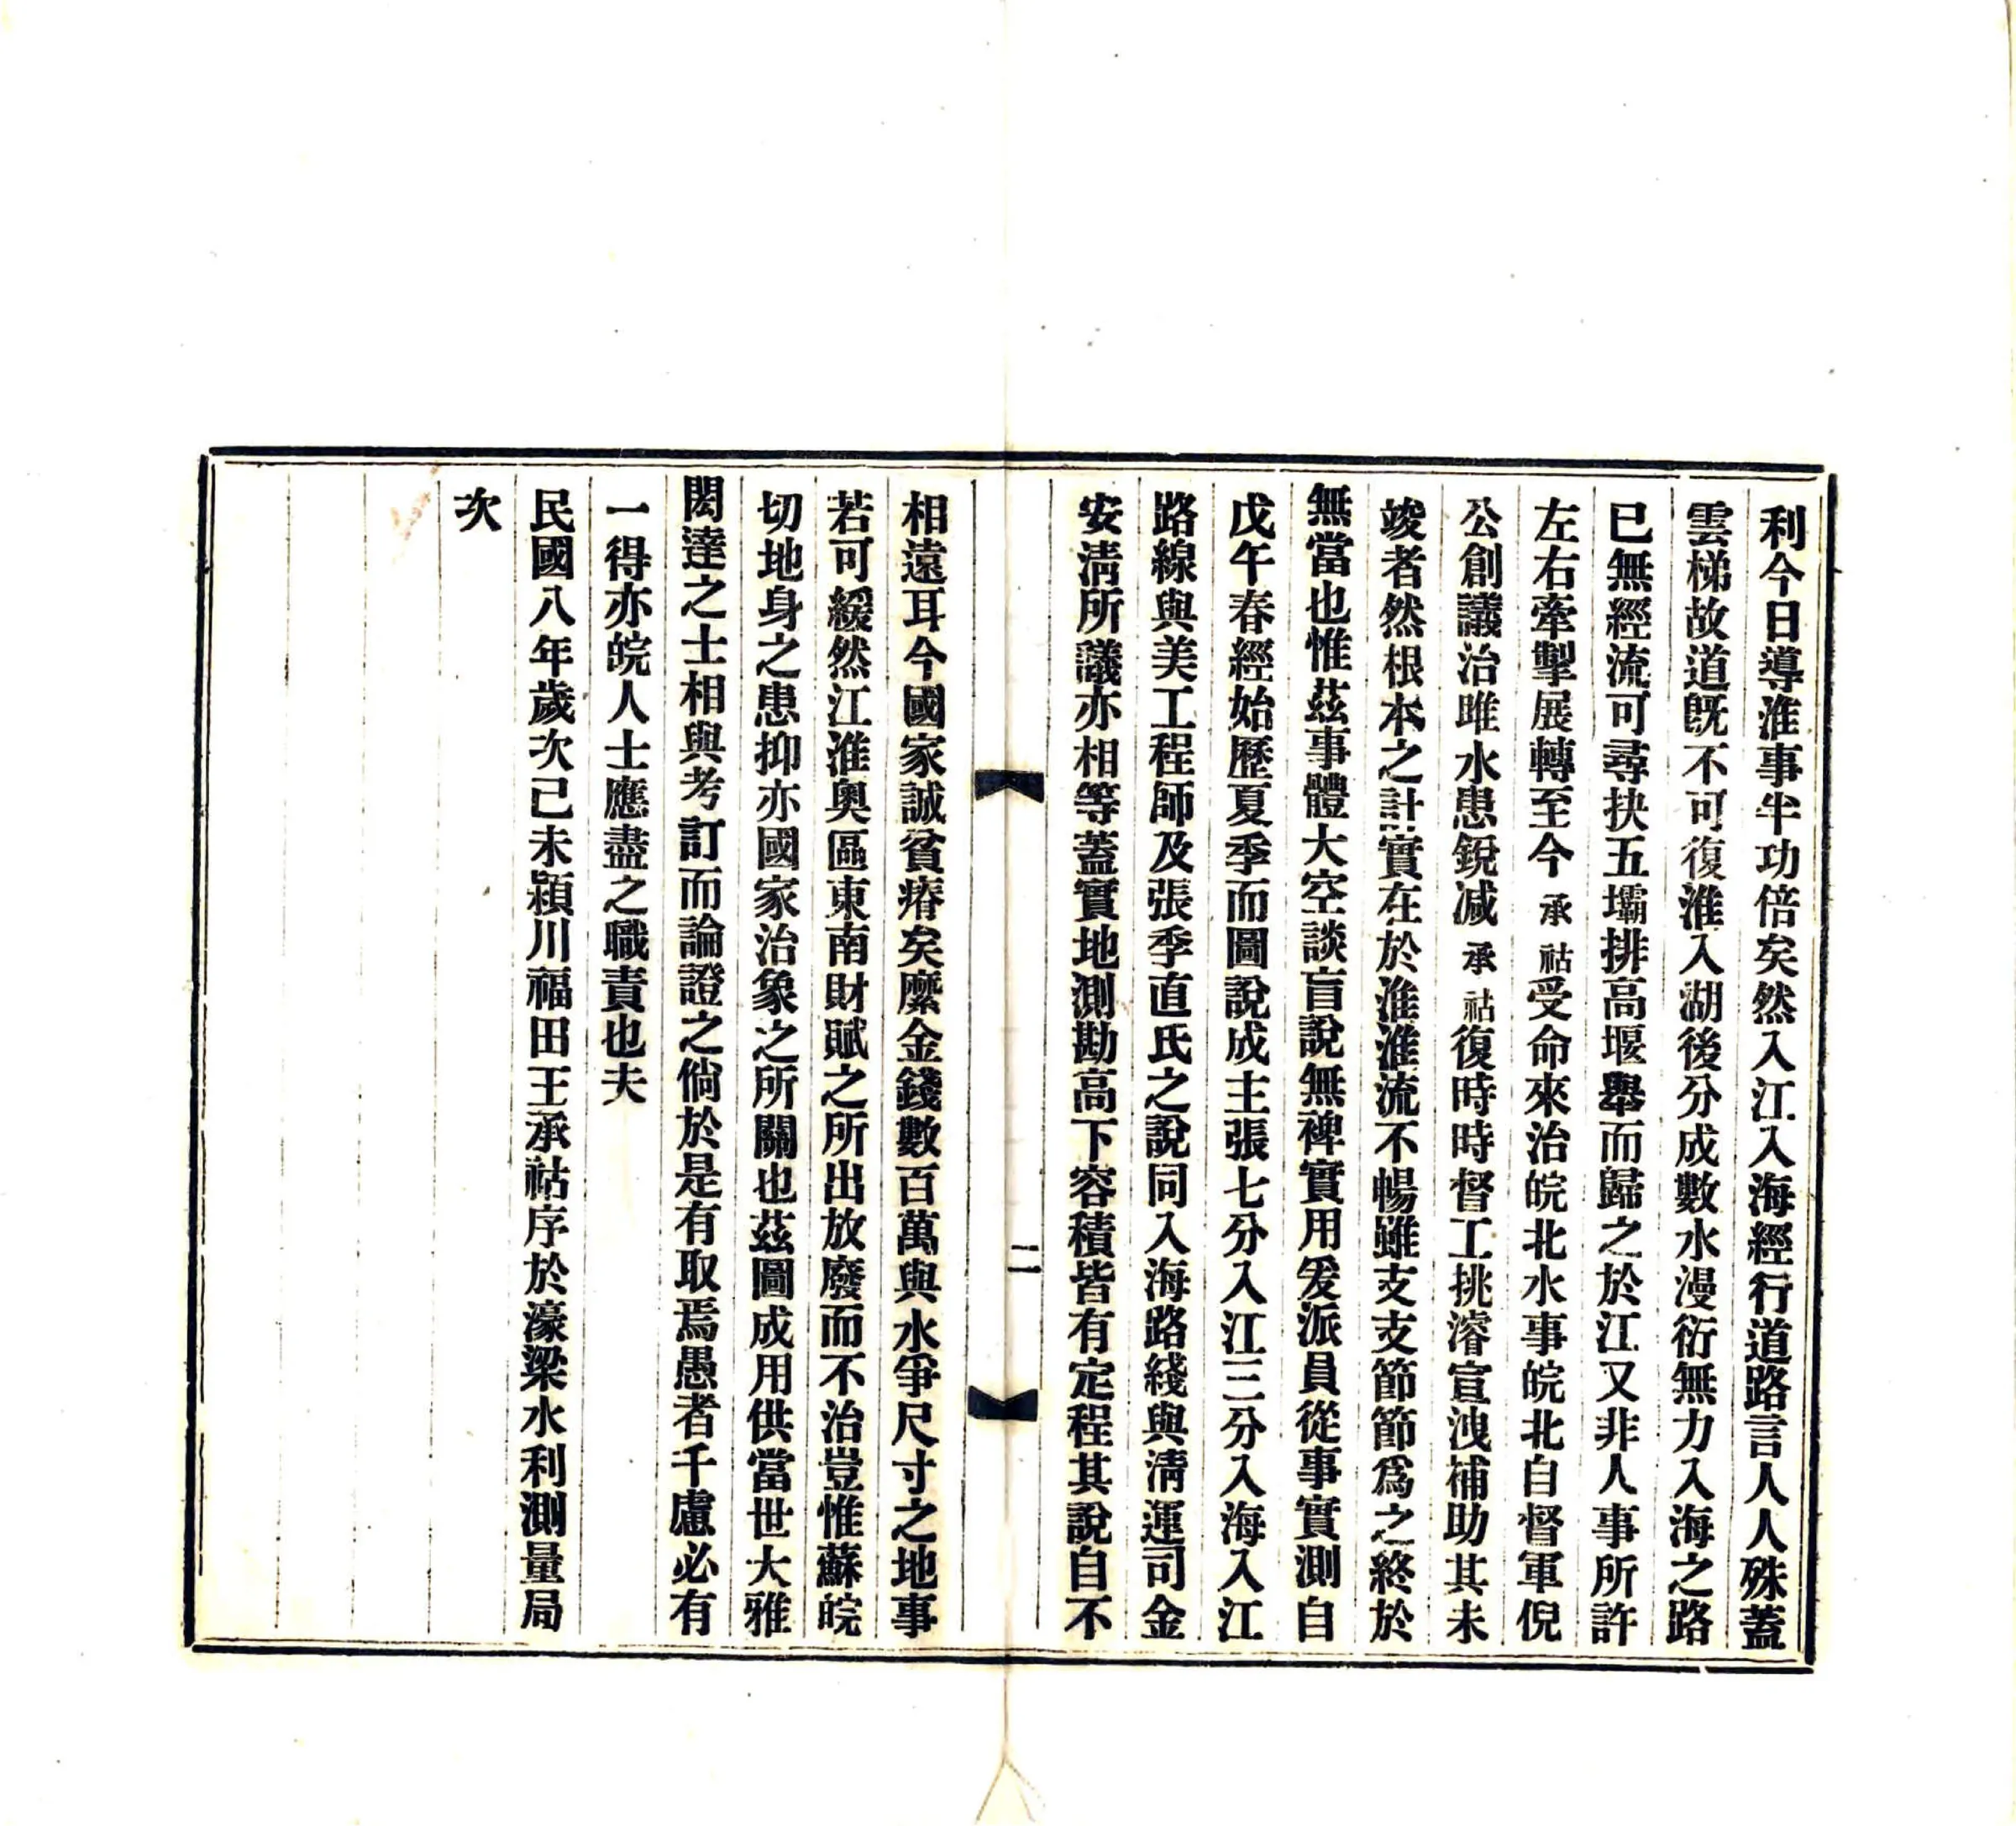 利今日導淮事半功倍矣然入江入海經行道路言人人殊蓋
雲梯故道既不可復淮入湖後分成數水漫衍無力入海之路
已無經流可尋抉五壩排高堰舉而歸之於江又非人事所許
左右牽掣展轉至今承祜受命來治皖北水事皖北自督軍倪
公創議治睢水患銳减承祜復時時督工挑濬宣洩補助其未
竣者然根本之計實在於淮淮流不暢雖支支節節爲之終於
無當也惟茲事體大空談盲說無裨實用爰派員從事實測自
戊午春經始歷夏季而圖說成主張七分入江三分入海入江
路線與美工程師及張季直氏之說同入海路綫與淸運司金
安淸所議亦相等蓋實地測勘高下容積皆有定程其說自不
二
相遠耳今國家誠貧瘠矣縻金錢數百萬與水爭尺寸之地事
若可緩然江淮奧區東南財賦之所出放廢而不治豈惟蘇皖
切地身之患抑亦國家治象之所關也茲圖成用供當世大雅
閎達之士相與考訂而論證之倘於是有取焉愚者千慮必有
一得亦皖人士應盡之職責也夫
民國八年歲次己未潁川福田王承祜序於濠梁水利測量局
次